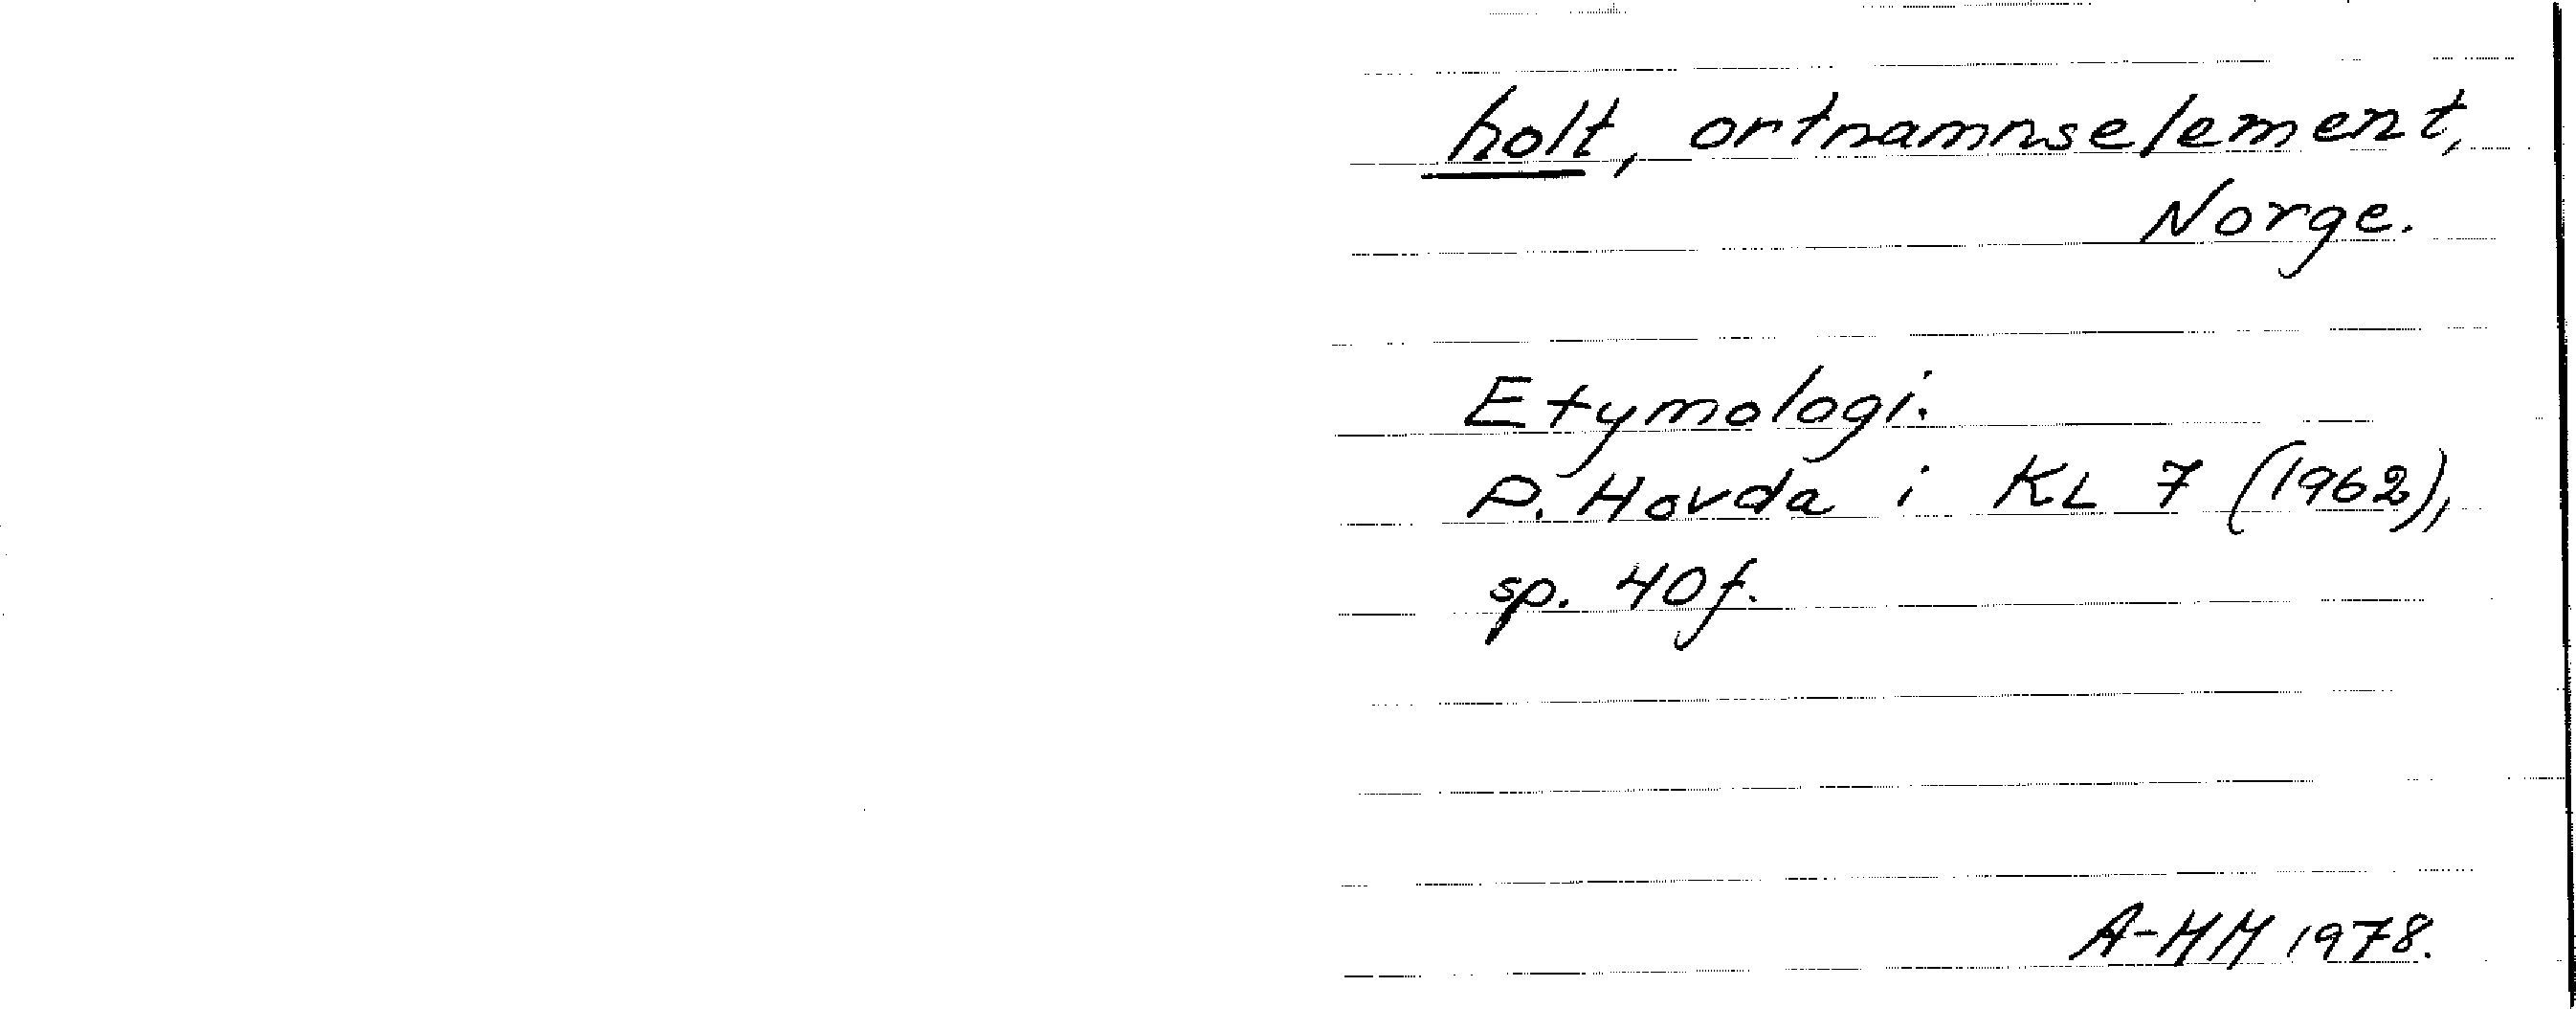 holt, ortnamnselement,
Norge.
Etymologi.
P. Hovda i KL 7 (1962),
sp. 40f.
A-HM 1978.